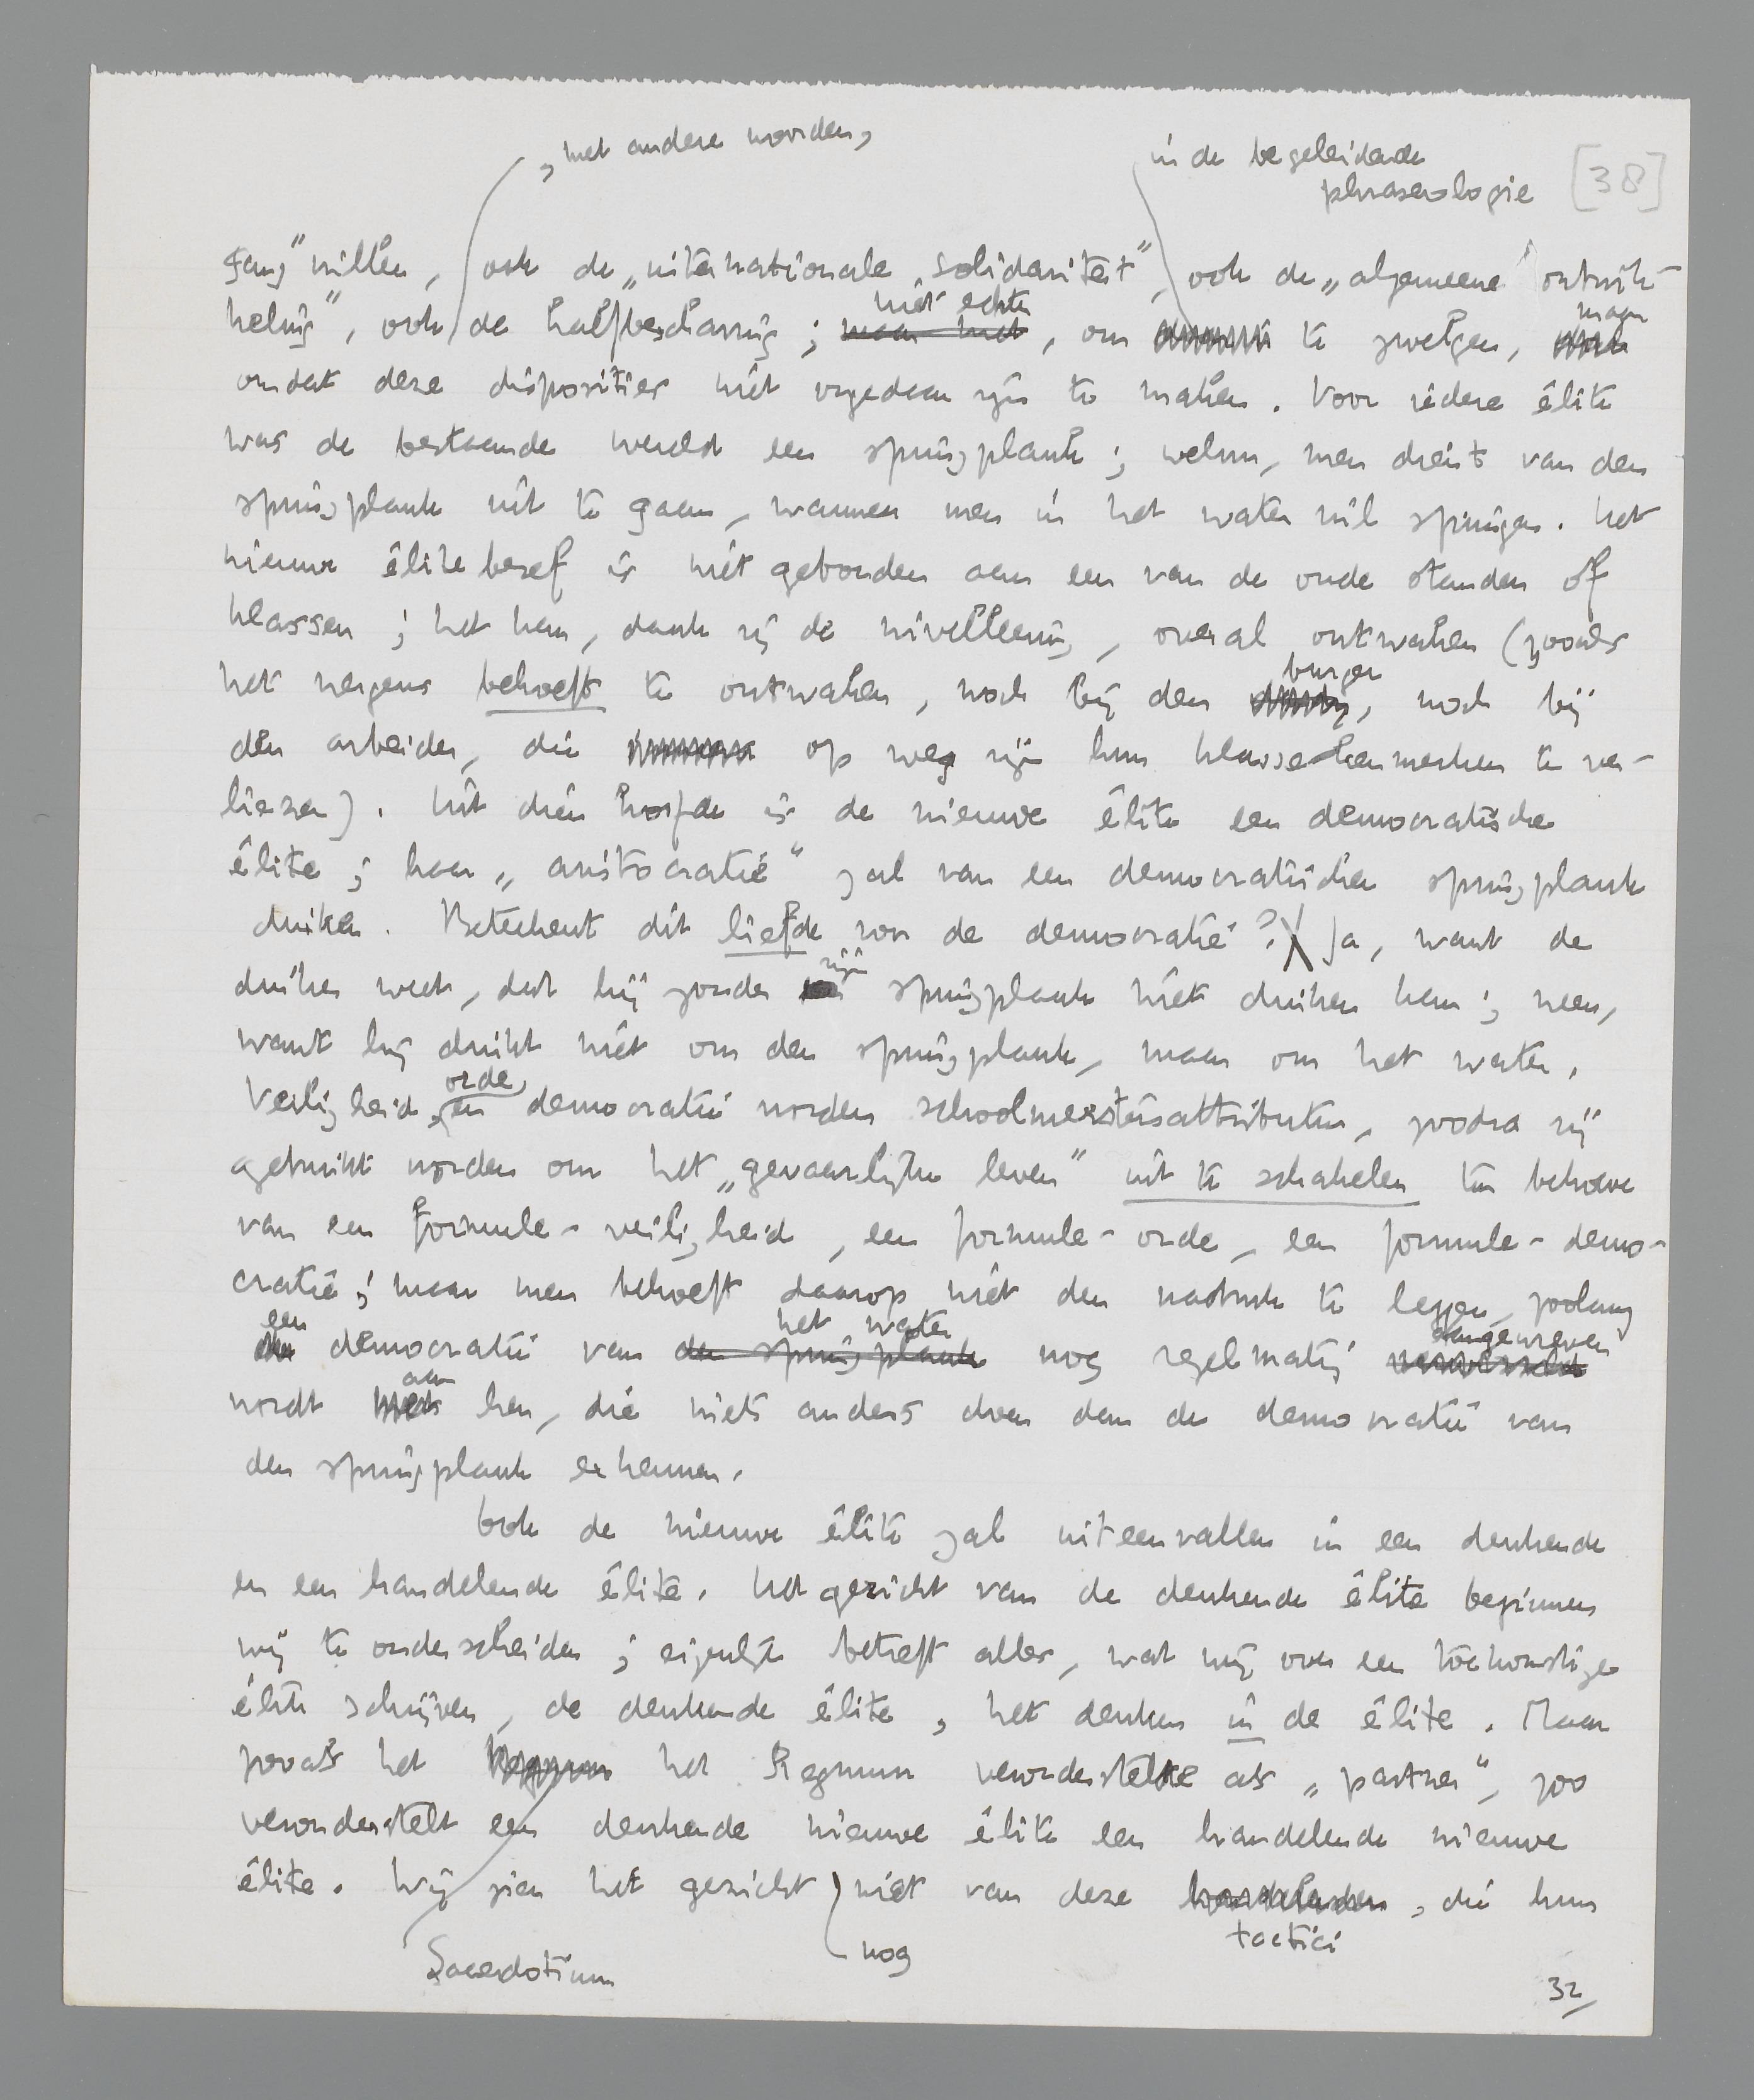 , met andere woorden,
in de begeleidende
phraseologie
[38]
gang" willen, ook de „internationale solidariteit", ook de „algemeene ontwik-
niet echter
keling", ook de halfbeschaving; maar niet, om te zwelgen, maar
omdat deze disposities niet ongedaan zijn te maken. Voor iedere élite
was de bestaande wereld een springplank; welnu, men dient van den
springplank uit te gaan, wanneer men in het water wil springen. Het
nieuwe élitebesef is niet gebonden aan een van de oude standen of
klassen; het kan, dank zij de nivelleering, overal ontwaken (zooals
burger
het nergens behoeft te ontwaken, noch bij den , noch bij
den arbeider, die op weg zijn hun klassekenmerken te ver-
liezen). Uit dien hoofde is de nieuwe élite een democratische
élite; haar „aristocratie" zal van een democratischen springplank
duiken. Beteekent dit liefde voor de democratie? Ja, want de
zijn
duiker weet, dat hij zonder springplank niet duiken kan; neen,
want hij duikt niet om den springplank, maar om het water.
orde
Veiligheid, en democratie worden schoolmeestersattributen, zoodra zij
gebruikt worden om het „gevaarlijke leven" uit te schakelen ten behoeve
van een formule-veiligheid, een formule-orde, een formule-demo-
cratie; maar men behoeft daarop niet den nadruk te leggen, zoolang
een het water aangewreven
democratie van den springplank nog regelmatig verwisseld
aan
wordt met hen, die niets anders doen dan de democratie van
den springplank erkennen.
Ook de nieuwe élite zal uiteenvallen in een denkende
en een handelende élite. Het gezicht van de denkende élite beginnen
wij te onderscheiden; eigenlijk betreft alles, wat wij over een toekomstige
élite schrijven, de denkende élite, het denken in de élite. Maar
zooals het Regnum het Regnum veronderstelde als „partner", zoo
veronderstelt een denkende nieuwe élite een handelende nieuwe
élite. Wij zien het gezicht niet van deze handelenden, die hun
tactici
nog
Sacerdotium
32